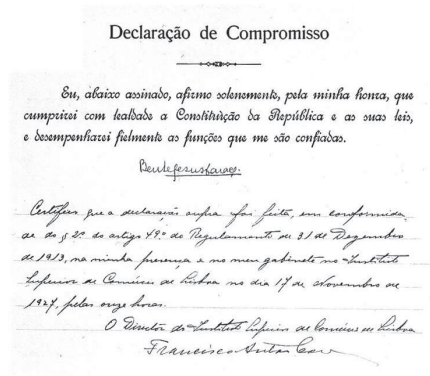 Declaração de Compromisso
Eu, abaixo assinado, afirmo solenemente, pela minha honra, que
cumprirei com lealdade a Constituição da República e as suas leis,
e desempenharei fielmente as funções que me são confiadas.
Bento Jesus Caraça.
Certifico que a declaração supra foi feita, em conformida-
de do § 2º do artigo 49º do Regulamento de 31 de Dezembro
de 1913, na minha presença e no meu gabinete no Instituto
Superior de Comércio de Lisboa no dia 17 de Novembro de
1927, pelas onze horas.
O Director do Instituto Superior de Comércio de Lisboa
Francisco António